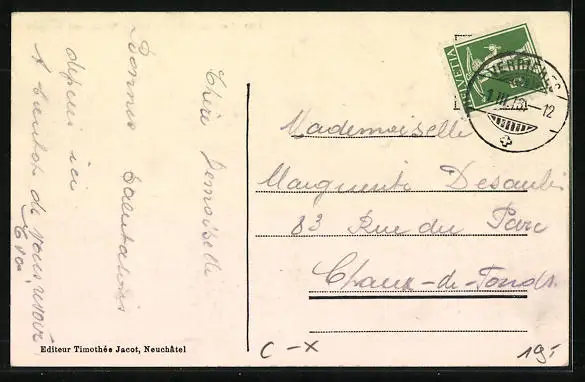 Chère Demoiselle
Bonnes salutations
depuis ici
A bientôt de vous revoir
HELVETIA
VERRIÈRES
1.III.13.-12
Mademoiselle
Marguerite Desaules
83 Rue du Parc
Chaux-de-Fonds.
Editeur Timothée Jacot, Neuchâtel
C-X